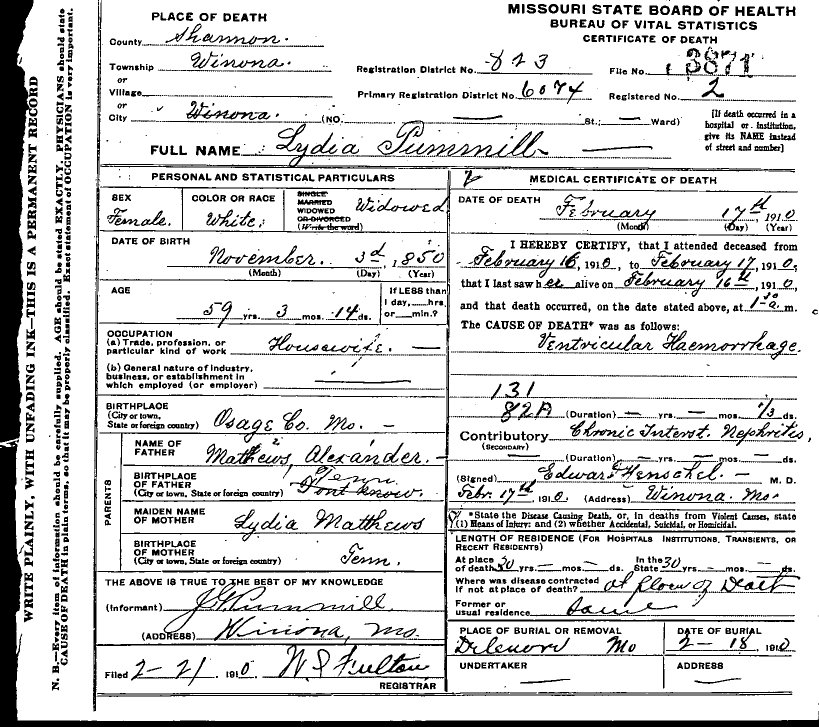 MISSOURI STATE BOARD OF HEALTH
BUREAU OF VITAL STATISTICS
CERTIFICATE OF DEATH
PLACE OF DEATH
County Shannon.
Township Winona.
or
Village
or
City Winona. (NO. — St.; — Ward)
Registration District No. 823 File No. 3871
Primary Registration District No. 6074 Registered No. 2
[If death occurred in a hospital or institution, give its NAME instead of street and number]
FULL NAME Lydia Pummill
PERSONAL AND STATISTICAL PARTICULARS
SEX
Female.
COLOR OR RACE
White.
SINGLE
MARRIED
WIDOWED
OR DIVORCED
(Write the word)
Widowed
DATE OF BIRTH
November. 3d, 1850
(Month) (Day) (Year)
AGE
59 yrs. 3 mos. 14 ds.
If LESS than
1 day, hrs.
or min.?
OCCUPATION
(a) Trade, profession, or
particular kind of work Housewife. —
(b) General nature of industry,
business, or establishment in
which employed (or employer) —
BIRTHPLACE
(City or town,
State or foreign country) Osage Co. Mo. —
PARENTS
NAME OF
FATHER Matthews, Alexander. —
BIRTHPLACE
OF FATHER
(City or town, State or foreign country) Tenn.
Dont know.
MAIDEN NAME
OF MOTHER Lydia Matthews
BIRTHPLACE
OF MOTHER
(City or town, State or foreign country) Tenn.
THE ABOVE IS TRUE TO THE BEST OF MY KNOWLEDGE
(Informant) Pummill.
(ADDRESS) Winona, Mo.
Filed 2-21 1910 Fulton
REGISTRAR
2 MEDICAL CERTIFICATE OF DEATH
DATE OF DEATH
February 17th 1910
(Month) (Day) (Year)
I HEREBY CERTIFY, that I attended deceased from
February 16, 1910, to February 17, 1910,
that I last saw her alive on February 16th, 1910,
and that death occurred, on the date stated above, at 1 30 a. m.
The CAUSE OF DEATH* was as follows:
Ventricular Haemorrhage.
131
82A (Duration) — yrs. — mos. 1/3 ds.
Contributory Chronic Interst. Nephritis,
(SECONDARY)
(Duration) — yrs. — mos. — ds.
(Signed) Edward Henschel. — M. D.
Febr. 17th 1910. (Address) Winona. Mo.
*State the Disease Causing Death, or, in deaths from Violent Causes, state
(1) Means of Injury; and (2) whether Accidental, Suicidal, or Homicidal.
LENGTH OF RESIDENCE (For Hospitals, Institutions, Transients, or
Recent Residents)
At place
of death 30 yrs. — mos. — ds. In the
State 30 yrs. — mos. — ds.
Where was disease contracted
if not at place of death? at place of Death
Former or
usual residence Same
PLACE OF BURIAL OR REMOVAL
Mo
DATE OF BURIAL
2-18, 1910
UNDERTAKER
—
ADDRESS
—
WRITE PLAINLY, WITH UNFADING INK—THIS IS A PERMANENT RECORD
N. B.—Every item of information should be carefully supplied. AGE should be stated EXACTLY. PHYSICIANS should state
CAUSE OF DEATH in plain terms, so that it may be properly classified. Exact statement of OCCUPATION is very important.